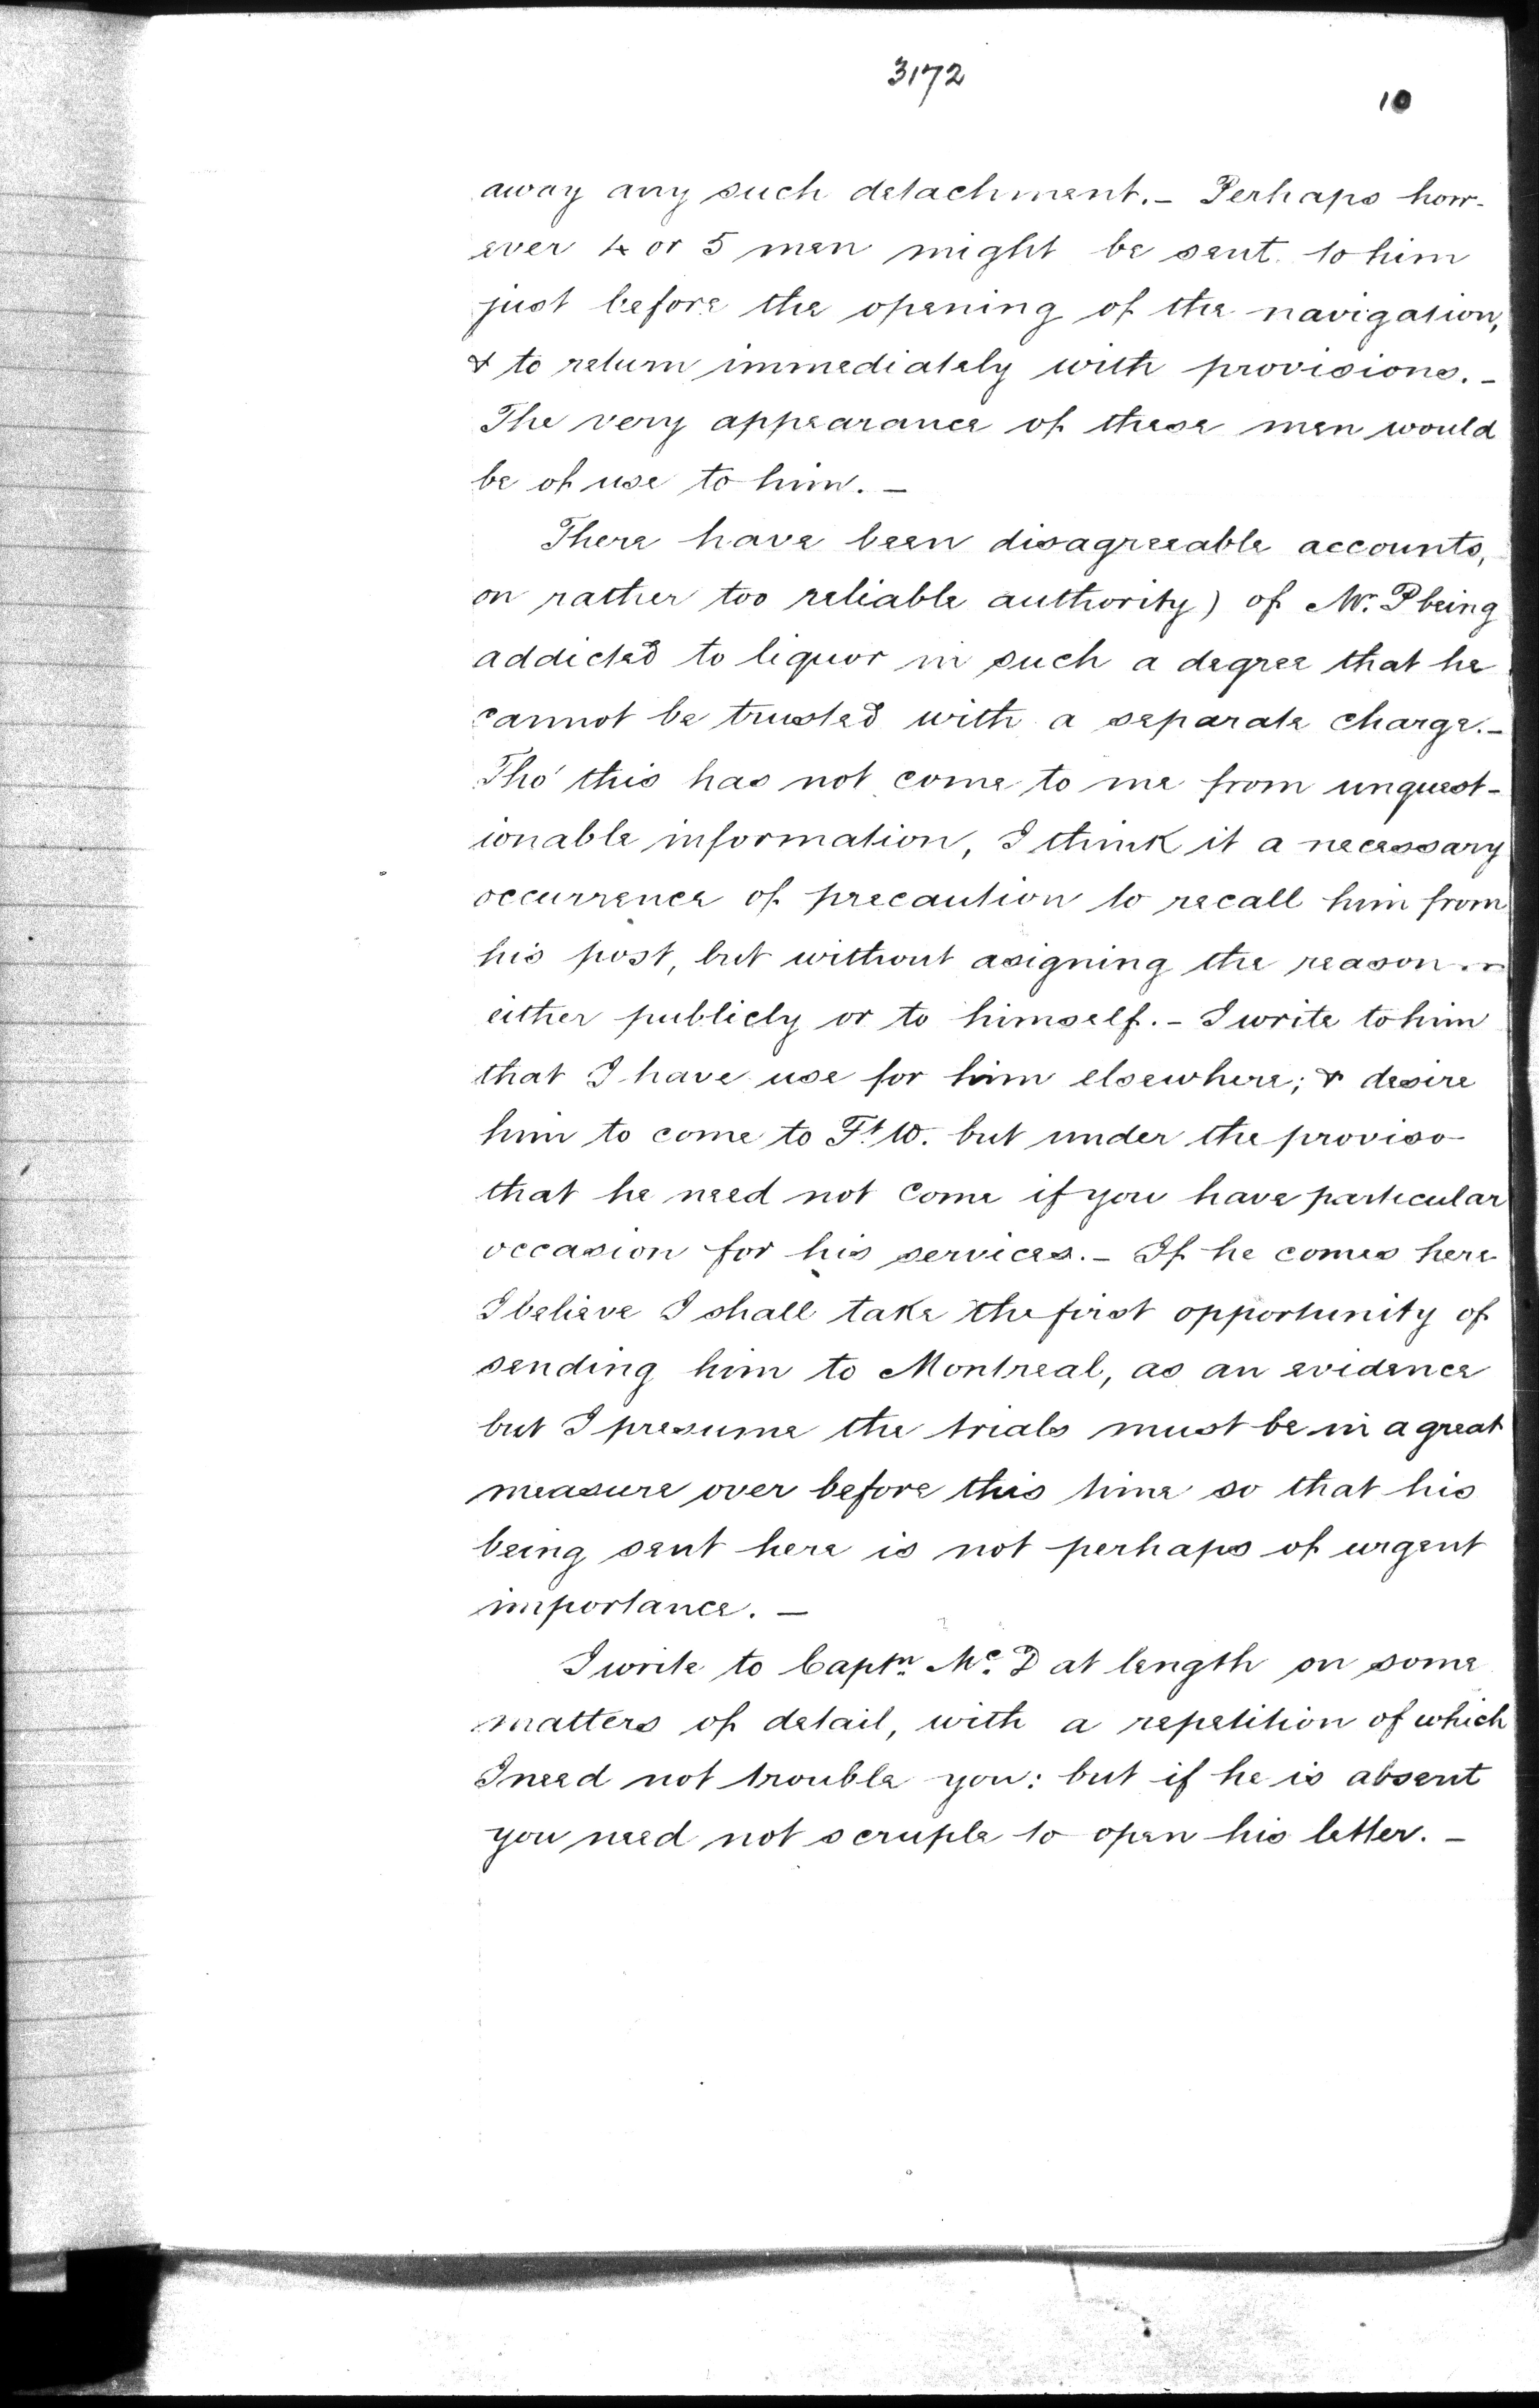 3172
10
away any such detachment. - Perhaps how-
ever 4 or 5 men might be sent to him
just before the opening of the navigation,
& to return immediately with provisions. -
The very appearance of these men would
be of use to him. -
There have been disagreeable accounts,
on rather too reliable authority) of Mr. P being
addicted to liquor in such a degree that he
cannot be trusted with a separate charge. -
Tho' this has not come to me from unquest-
ionable information, I think it a necessary
occurrence of precaution to recall him from
his post, but without asigning the reason
either publicly or to himself. - I write to him
that I have use for him elsewhere; & desire
him to come to Ft. W. but under the proviso
that he need not come if you have particular
occasion for his services. - If he comes here
I believe I shall take the first opportunity of
sending him to Montreal, as an evidence
but I presume the trials must be in a great
measure over before this time so that his
being sent here is not perhaps of urgent
importance. -
I write to Captn. Mc. D at length on some
matters of detail, with a repetition of which
I need not trouble you: but if he is absent
you need not scruple to open his letter. -